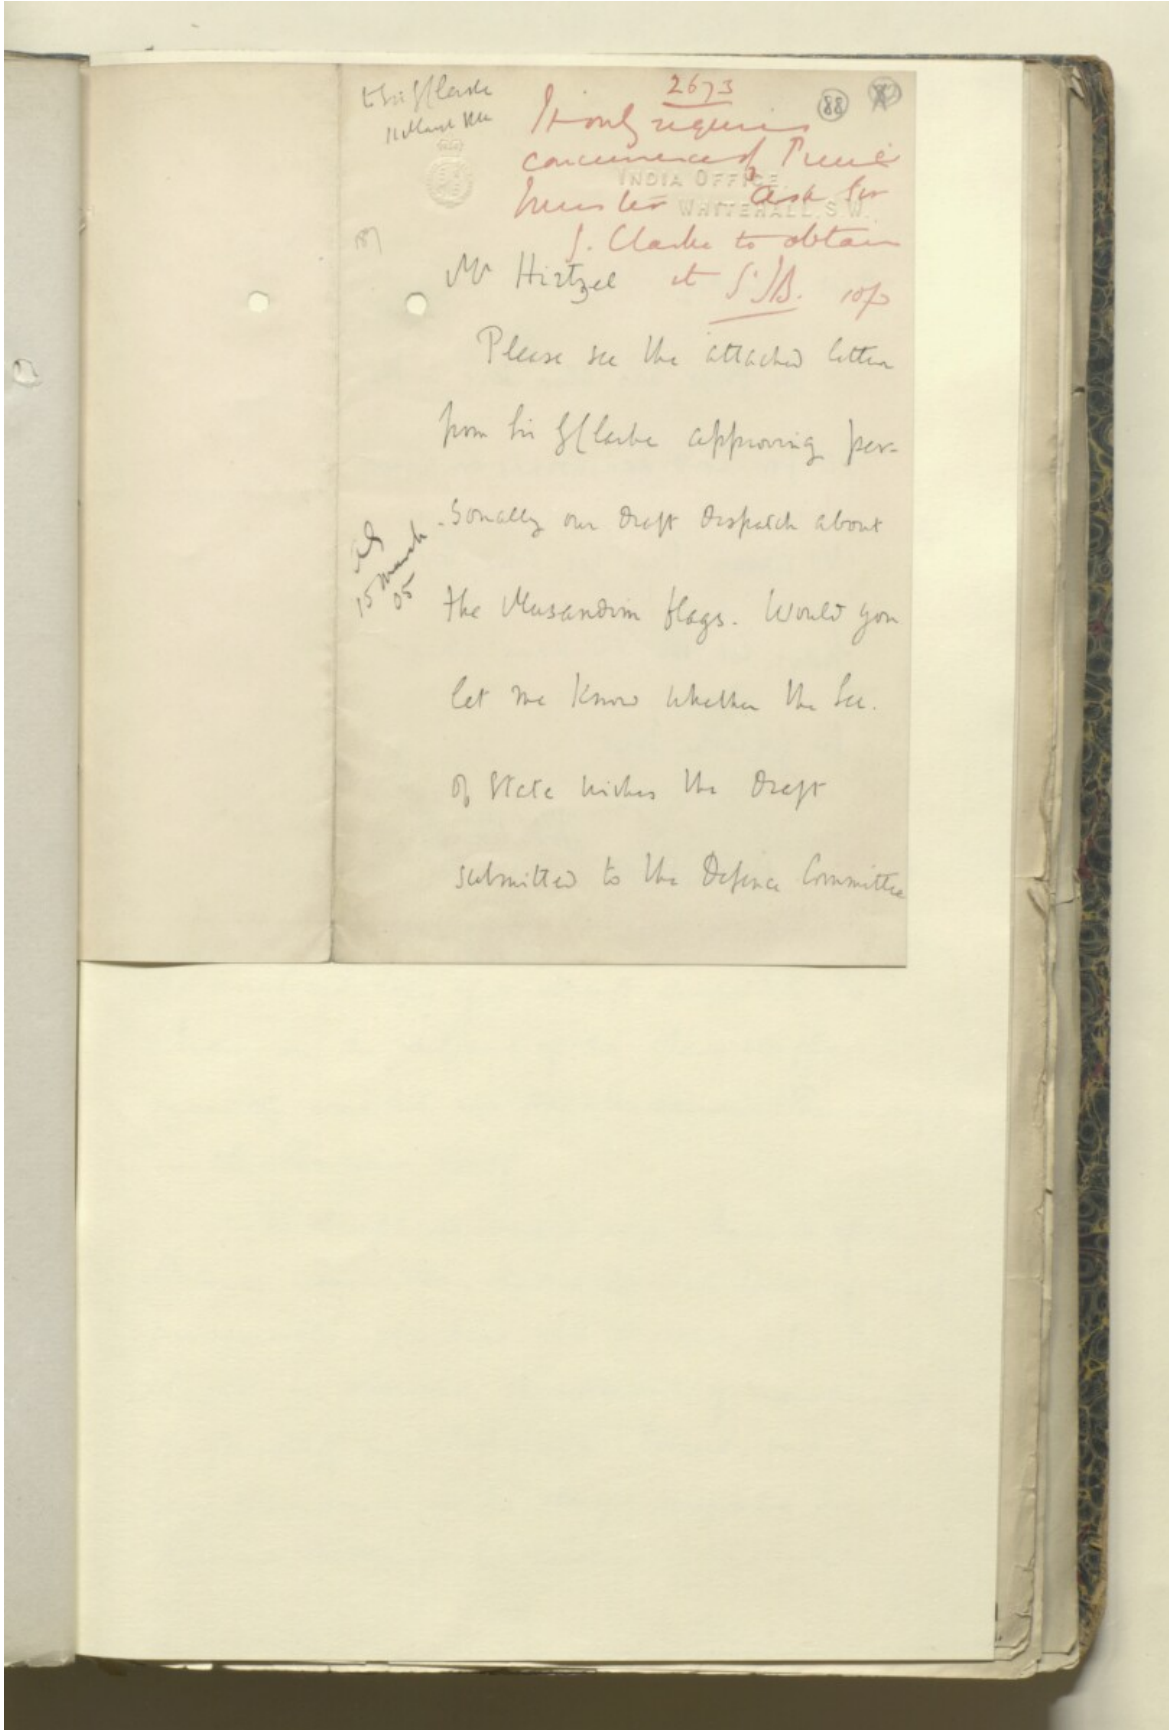 2673
88
It only requires
concurrence of Prime
Minister Ask Sir
G. Clarke to obtain
it S.J.B. 10/3
to Sir G Clarke
INDIA OFFICE,
WHITEHALL, S.W.
187
Mr Hirtzel
Please see the attached letter
from Sir G Clarke approving per-
-sonally our draft dispatch about
the Musandim flags. Would you
let me know whether the Sec.
of State wishes the draft
submitted to the Defence Committee
15 March
05